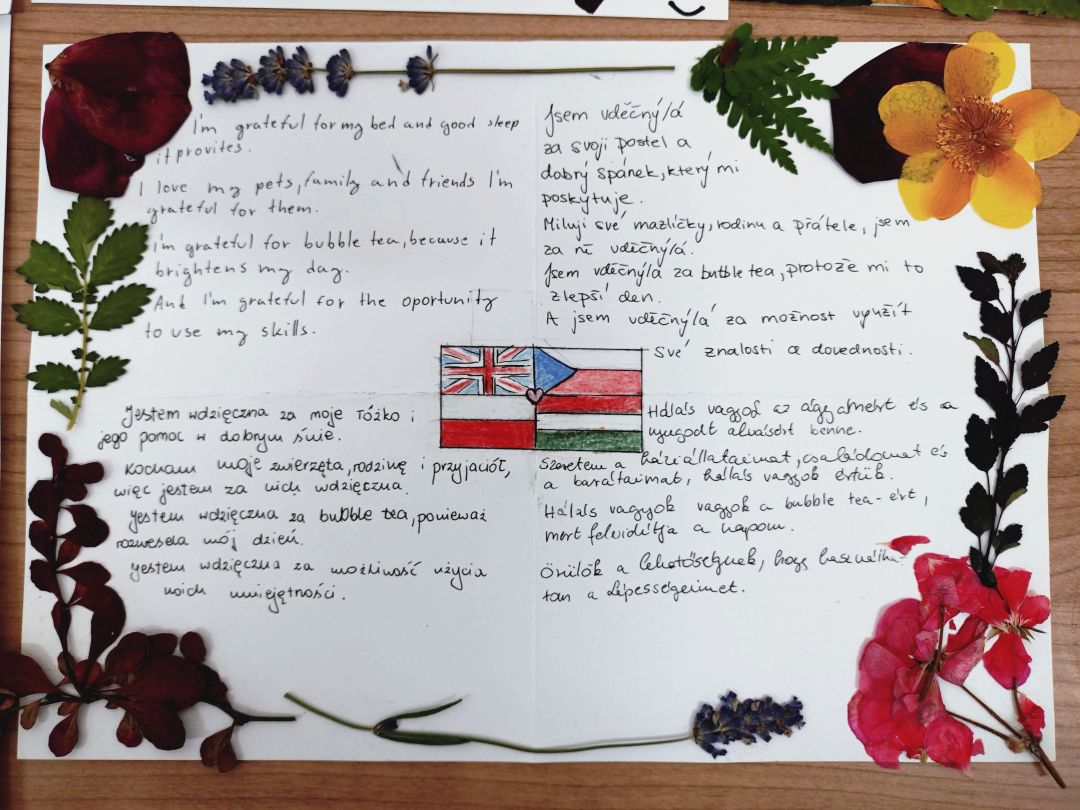 I'm grateful for my bed and good sleep
it provites.
I love my pets, family and friends I'm
grateful for them.
I'm grateful for bubble tea, because it
brightens my day.
And I'm grateful for the oportunity
to use my skills.
Jsem vděčný/á
za svoji postel a
dobrý spánek, který mi
poskytuje.
Miluji své mazlíčky, rodinu a přátele, jsem
za ně vděčný/á.
Jsem vděčný/á za bubble tea, protože mi to
zlepší den.
A jsem vděčný/á za možnost využít
své znalosti a dovednosti.
Jestem wdzięczna za moje łóżko i
jego pomoc w dobrym śnie.
Kocham moje zwierzęta, rodzinę i przyjaciół,
więc jestem za nich wdzięczna.
Jestem wdzięczna za bubble tea, ponieważ
rozwesela mój dzień.
Jestem wdzięczna za możliwość użycia
moich umiejętności.
Hálás vagyok az ágyamért és a
nyugodt alvásért benne.
Szeretem a háziállataimat, családomat és
a barátaimat, hálás vagyok értük.
Hálás vagyok vagyok a bubble tea-ért,
mert felvidítja a napom.
Örülök a lehetőségnek, hogy használha-
tom a képességeimet.